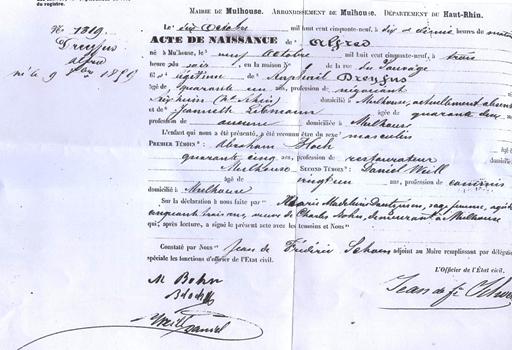 du registre.
MAIRIE DE MULHOUSE. ARRONDISSEMENT DE MULHOUSE. DÉPARTEMENT DU HAUT-RHIN.
N° 1319
Dreyfus
alfred
né le 9 8bre 1859
Le dix Octobre mil huit cent cinquante-neuf, à dix heures du matin
ACTE DE NAISSANCE de Alfred
né à Mulhouse, le neuf Octobre mil huit cent cinquante-neuf, à trois
heures du soir, en la maison N° de la rue du Sauvage
fils légitime de Raphaël Dreyfus
âgé de quarante un ans, profession de négociant
domicilié à Mulhouse, actuellement absent
et de Jeannette Libmann âgée de quarante deux
profession de aucune domiciliée à Mulhouse
L'enfant qui nous a été présenté, a été reconnu être du sexe masculin
PREMIER TÉMOIN: Abraham Bloch
quarante cinq ans, profession de restaurateur
Mulhouse SECOND TÉMOIN: Daniel Weill
âgé de vingt un ans, profession de commis
domicilié à Mulhouse
Sur la déclaration à nous faite par Marie Madeleine sage femme, âgée
cinquante trois ans, veuve de Charles Bohn, demeurant à Mulhouse
qui, après lecture, a signé le présent acte avec les témoins et Nous
Constaté par Nous Jean de Frédéric Schoen adjoint au Maire remplissant par délégation
spéciale les fonctions d'officier de l'État civil.
L'Officier de l'État civil.
M Bohn
Bloch
Jean de fs Schoen
Weill Daniel